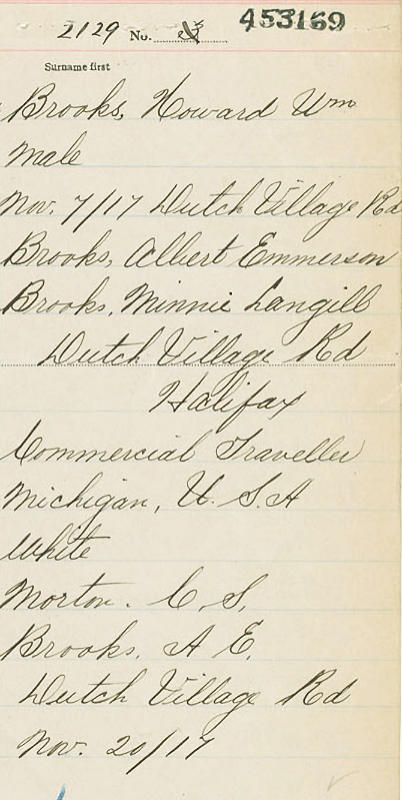 2129 No. 453169
Surname first
Brooks, Howard Wm
Male
Nov. 7/17 Dutch Village Rd
Brooks, Albert Emmerson
Brooks, Minnie Langill
Dutch Village Rd
Halifax
Commercial Traveller
Michigan, U.S.A
White
Morton. C. S.
Brooks. A E.
Dutch Village Rd
Nov. 20/17